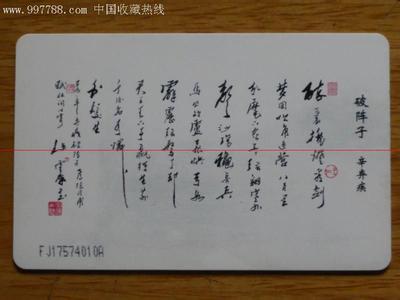 www.997788.com 中国收藏热线
破阵子 辛弃疾
醉里挑灯看剑
梦回吹角连营八百里
分麾下炙五十弦翻塞外
声沙场秋点兵
马作的卢飞快弓如
霹雳弦惊了却
君王天下事赢得生前
身后名可怜
白发生
FJ17574010A